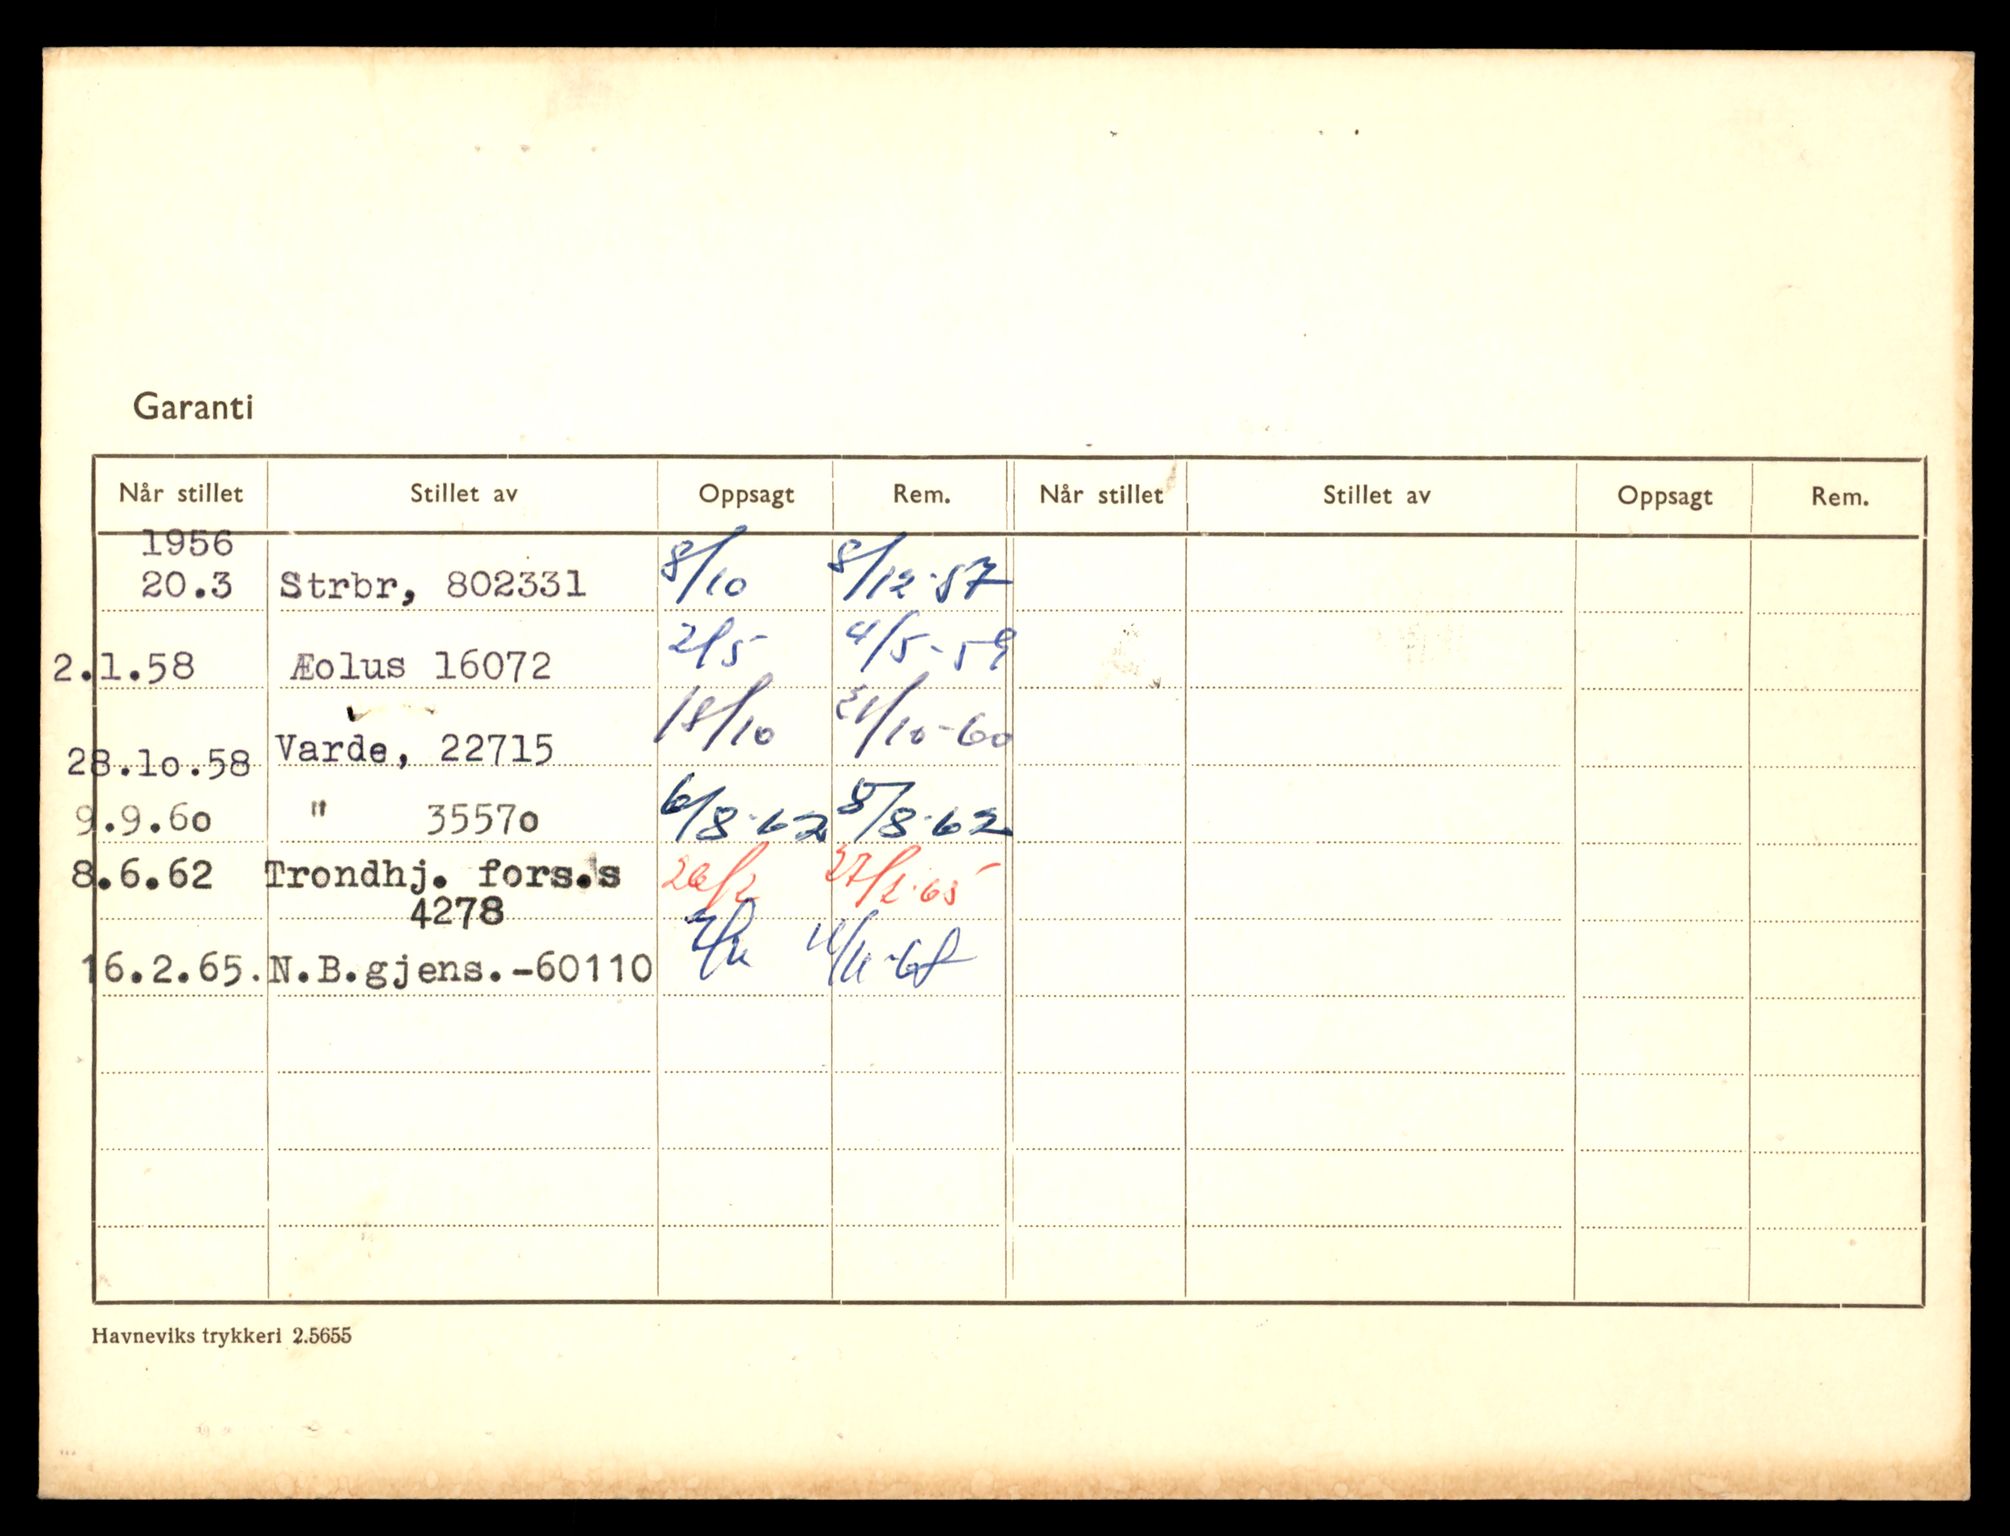 Garanti
Når stillet Stillet av Oppsagt Rem. Når stillet Stillet av Oppsagt Rem.
1956
20.3 Strbr, 802331 8/10 8/12-57
2.1.58 Æolus 16072 2/5 4/5-59
28.10.58 Varde, 22715 18/10 21/10-60
9.9.60 " 35570 6/8-62 8/8-62
8.6.62 Trondhj. fors.s 26/2 27/2-65
4278
16.2.65. N.B.gjens.-60110
Havneviks trykkeri 2.5655